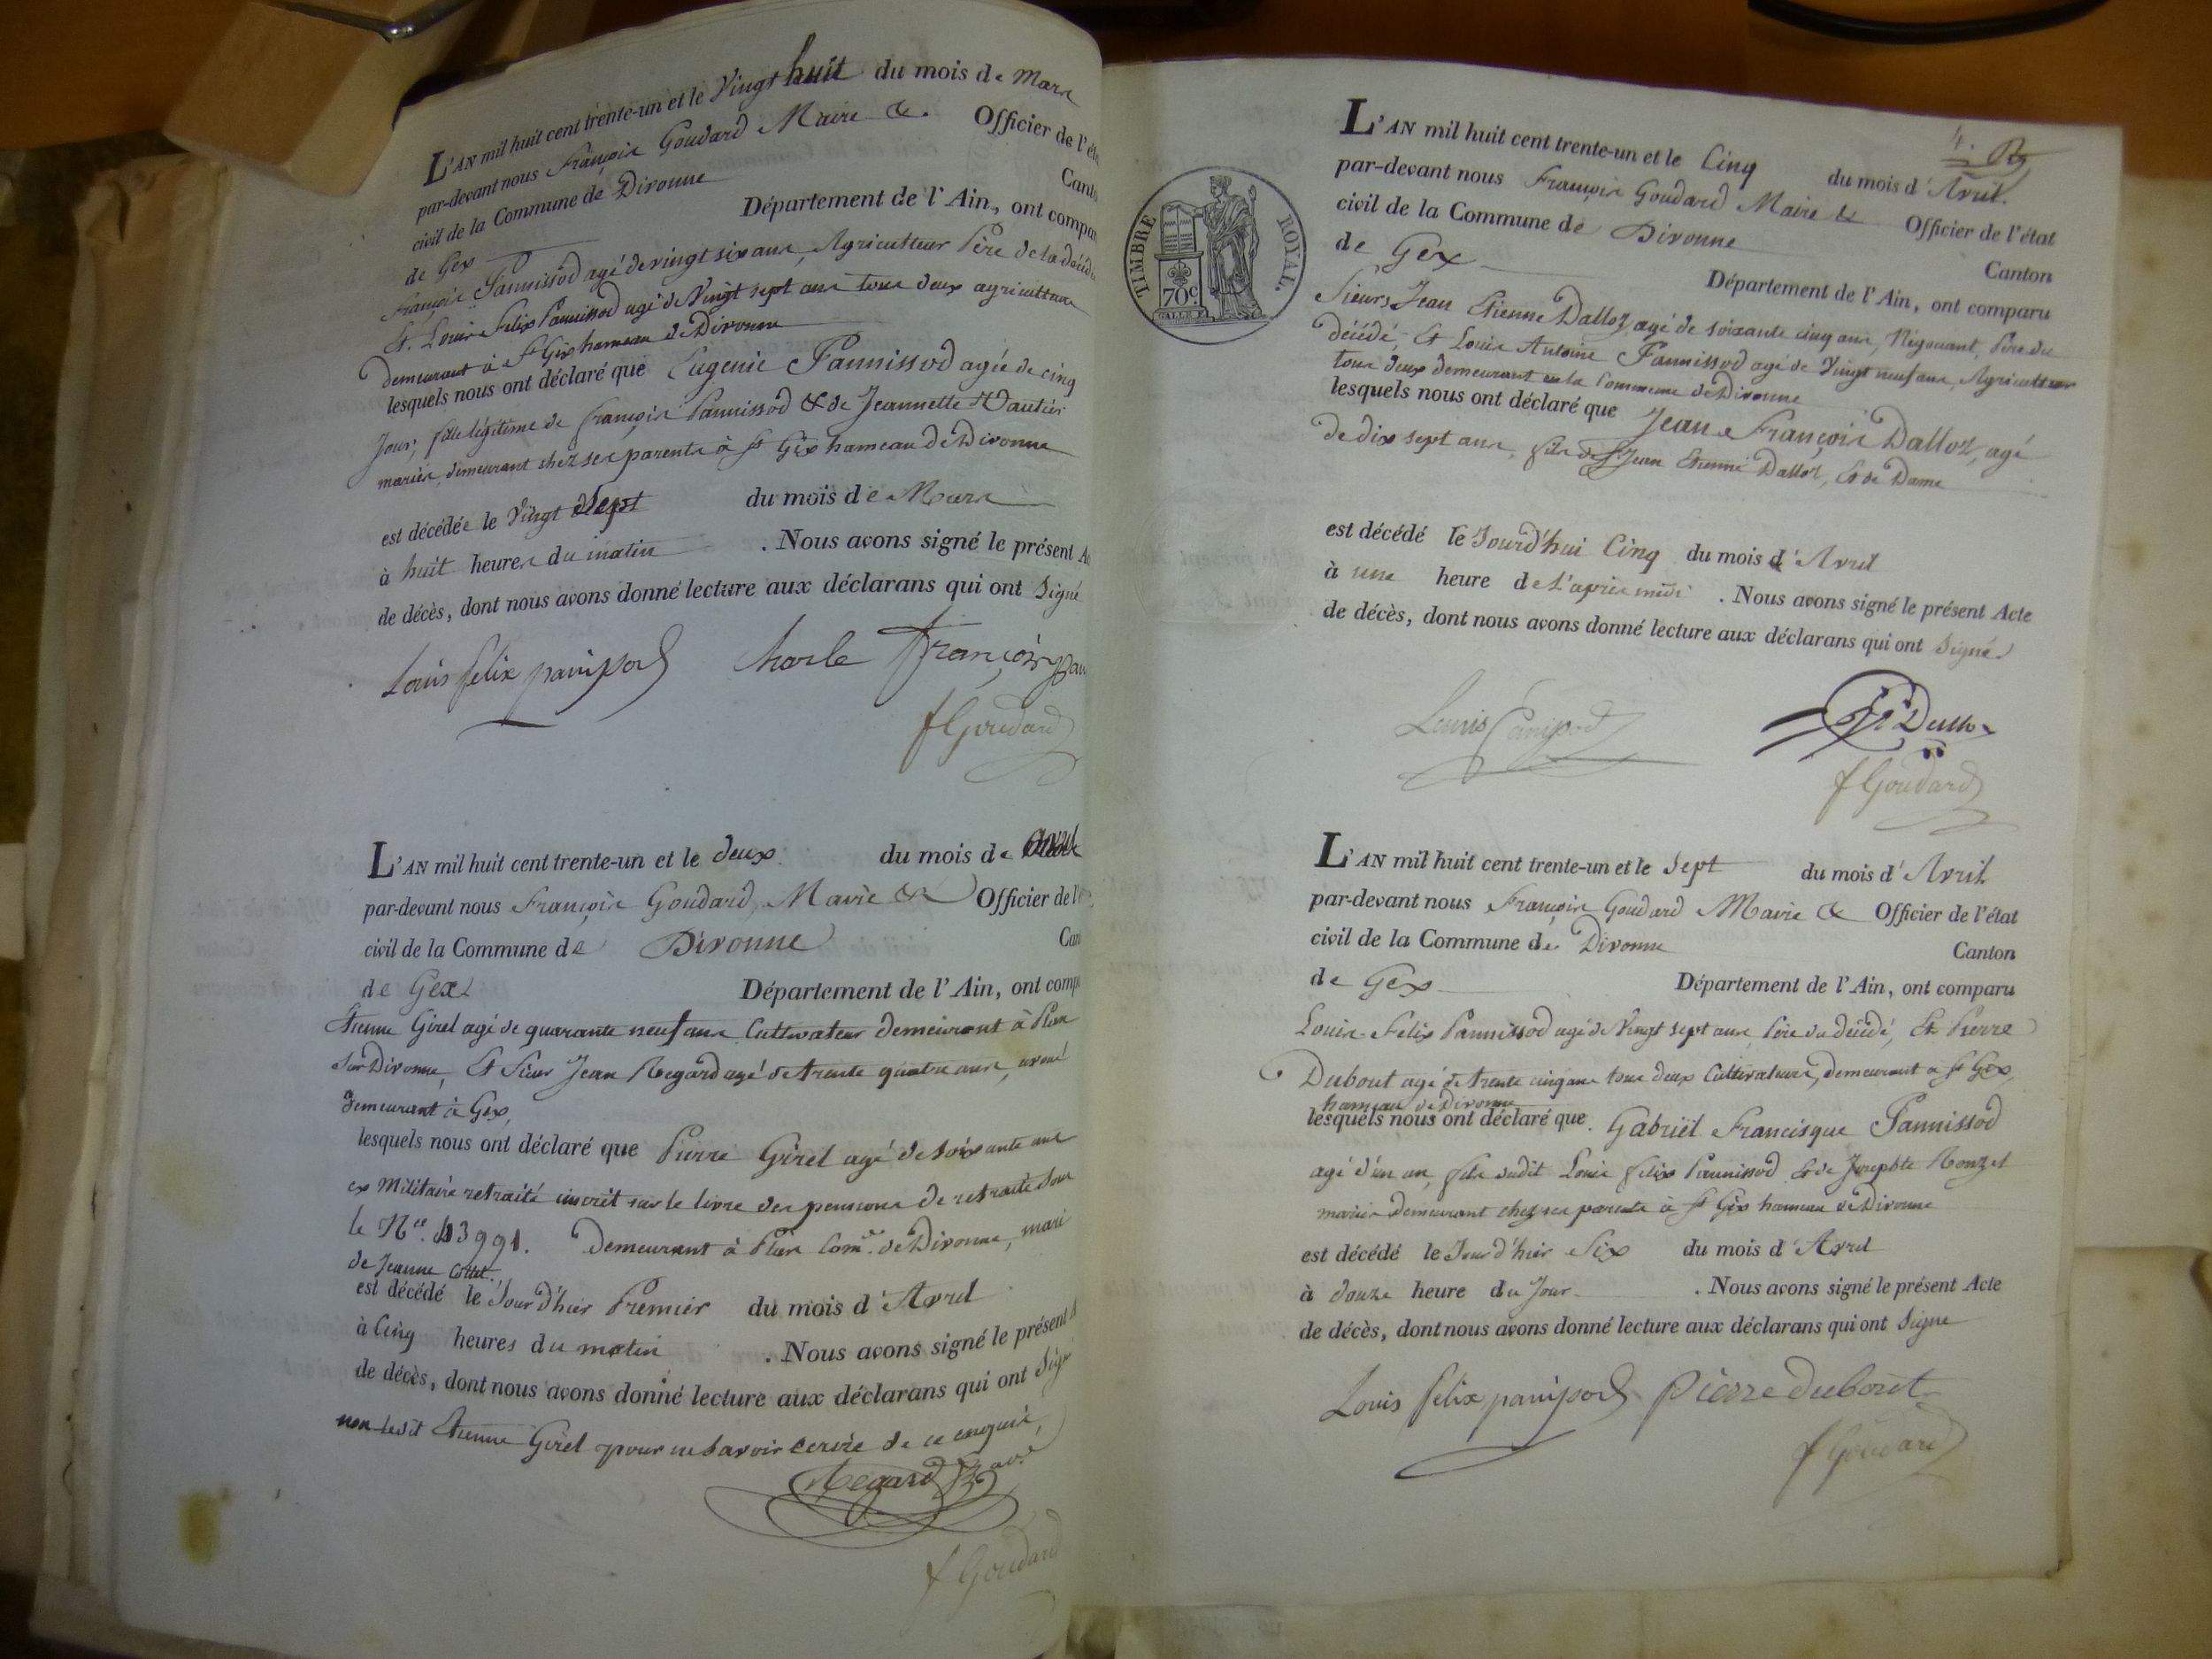 L'AN mil huit cent trente-un et le Vingt huit du mois de Mars
par-devant nous François Goudard Maire &. Officier de l'ét
civil de la Commune de Divonne Cant
de Gex Département de l'Ain, ont compa
François Pannissod agé de vingt six ans, Agriculteur Père de la décéd
Et Louis Felix Pannissod agé de Vingt sept ans tous deux agriculteurs
demeurant à St Gix hameau de Divonne
lesquels nous ont déclaré que Eugenie Pannissod agée de cinq
Jour, fille légitime de François Pannissod & de Jeannette Vautier
mariés, demeurant chez ses parents à St Gix hameau de Divonne
est décédée le Vingt Sept du mois de Mars
à huit heures du matin . Nous avons signé le présent A
de décès, dont nous avons donné lecture aux déclarans qui ont Signé
Louis felix panissod Charle François pan
f Goudard
L'AN mil huit cent trente-un et le deux du mois de
par-devant nous François Goudard, Maire & Officier de l'
civil de la Commune de Divonne Can
de Gex Département de l'Ain, ont comp
Etienne Girel agé de quarante neuf ans Cultivateur demeurant à Plan
sur Divonne, Et Sieur Jean Regard agé de trente quatre ans, avoué
demeurant à Gex,
lesquels nous ont déclaré que Pierre Girel agé de soixante ans
ex Militaire retraité inscrit sur le livre des pensions de retraite sous
le N.ce 43991. Demeurant à Plan Com.ne de Divonne, mari
de Jeanne
est décédé le Jour d'hier Premier du mois d'Avril
à Cinq heures du matin . Nous avons signé le présent A
de décès, dont nous avons donné lecture aux déclarans qui ont Signé
non ledit Etienne Girel pour ne savoir écrire de ce enquis,
Regard av.é
f Goudard
4.
TIMBRE ROYAL.
70c
L'AN mil huit cent trente-un et le Cinq du mois d'Avril.
par-devant nous François Goudard Maire & Officier de l'état
civil de la Commune de Divonne Canton
de Gex Département de l'Ain, ont comparu
Sieurs Jean Etienne Dalloz agé de soixante cinq ans, Négociant, Père du
décédé, Et Louis Antoine Pannissod agé de Vingt neuf ans, Agriculteur
tous deux demeurant en la Commune de Divonne
lesquels nous ont déclaré que Jean François Dalloz, agé
de dix sept ans, fils de Sr Jean Etienne Dalloz, Et de Dame
est décédé le Jourd'hui Cinq du mois d'Avril
à une heure de l'après midi . Nous avons signé le présent Acte
de décès, dont nous avons donné lecture aux déclarans qui ont Signé.
Louis Panissod
f Goudard
L'AN mil huit cent trente-un et le Sept du mois d'Avril
par-devant nous François Goudard Maire & Officier de l'état
civil de la Commune de Divonne Canton
de Gex Département de l'Ain, ont comparu
Louis Felix Pannissod agé de Vingt sept ans, Père du décédé, Et Pierre
Dubout agé de trente cinq ans tous deux Cultivateurs, demeurant à St Gix,
hameau de Divonne
lesquels nous ont déclaré que Gabriël Francisque Pannissod
agé d'un an, fils dudit Louis Felix Pannissod & de Josephte Ronzet
mariés demeurant chez ses parents à St Gix hameau de Divonne
est décédé le Jour d'hier Six du mois d'Avril
à douze heure du Jour . Nous avons signé le présent Acte
de décès, dont nous avons donné lecture aux déclarans qui ont Signé
Louis felix panissod Pierre dubout
f Goudard